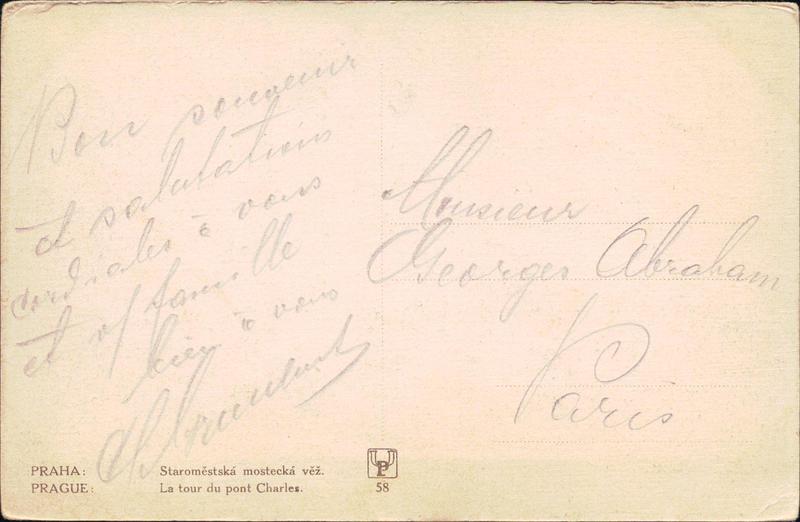 Bon souvenir
et salutations
cordiales à vous
et v/ famille
bien à vous
Monsieur
Georges Abraham
Paris
PRAHA: Staroměstská mostecká věž.
PRAGUE: La tour du pont Charles.
P
58